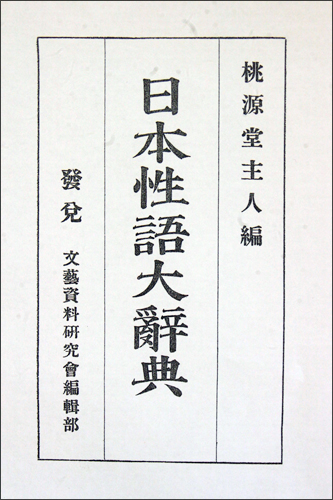 桃源堂主人編
日本性語大辭典
發兌 文藝資料研究會編輯部